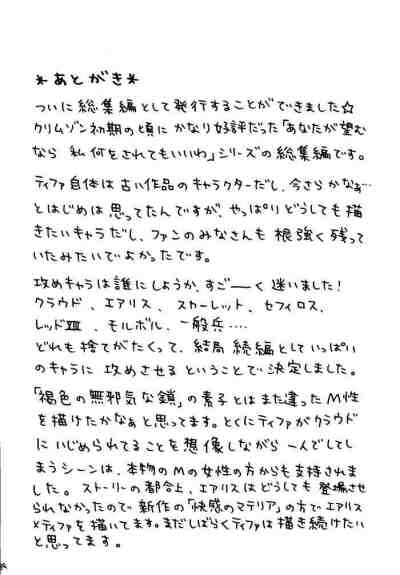 *あとがき*
ついに総集編として発行することができました☆
クリムゾン初期の頃にかなり好評だった「あなたが望む
なら 私何をされてもいいわ」シリーズの総集編です。
ティファ自体は古い作品のキャラクターだし、今さらかなぁ…
とはじめは思ってたんですが、やっぱりどうしても描
きたいキャラだし、ファンのみなさんも根強く残って
いたみたいでよかったです。
攻めキャラは誰にしようか、すご――く迷いました！
クラウド、エアリス、スカーレット、セフィロス、
レッドⅩⅢ、モルボル、一般兵‥‥
どれも捨てがたくって、結局 続編としていっぱい
のキャラに 攻めさせる ということで決定しました。
「褐色の無邪気な鎖」の素子とはまた違ったM性
を描けたかなぁと思ってます。とくにティファがクラウド
にいじめられてることを想像しながら一人でしてし
まうシーンは、本物のMの女性の方からも支持されま
した。ストーリーの都合上、エアリスはどうしても登場させ
られなかったので 新作の「快感のマテリア」の方でエアリス
×ティファを描いてます。まだしばらくティファは描き続けたい
と思ってます。